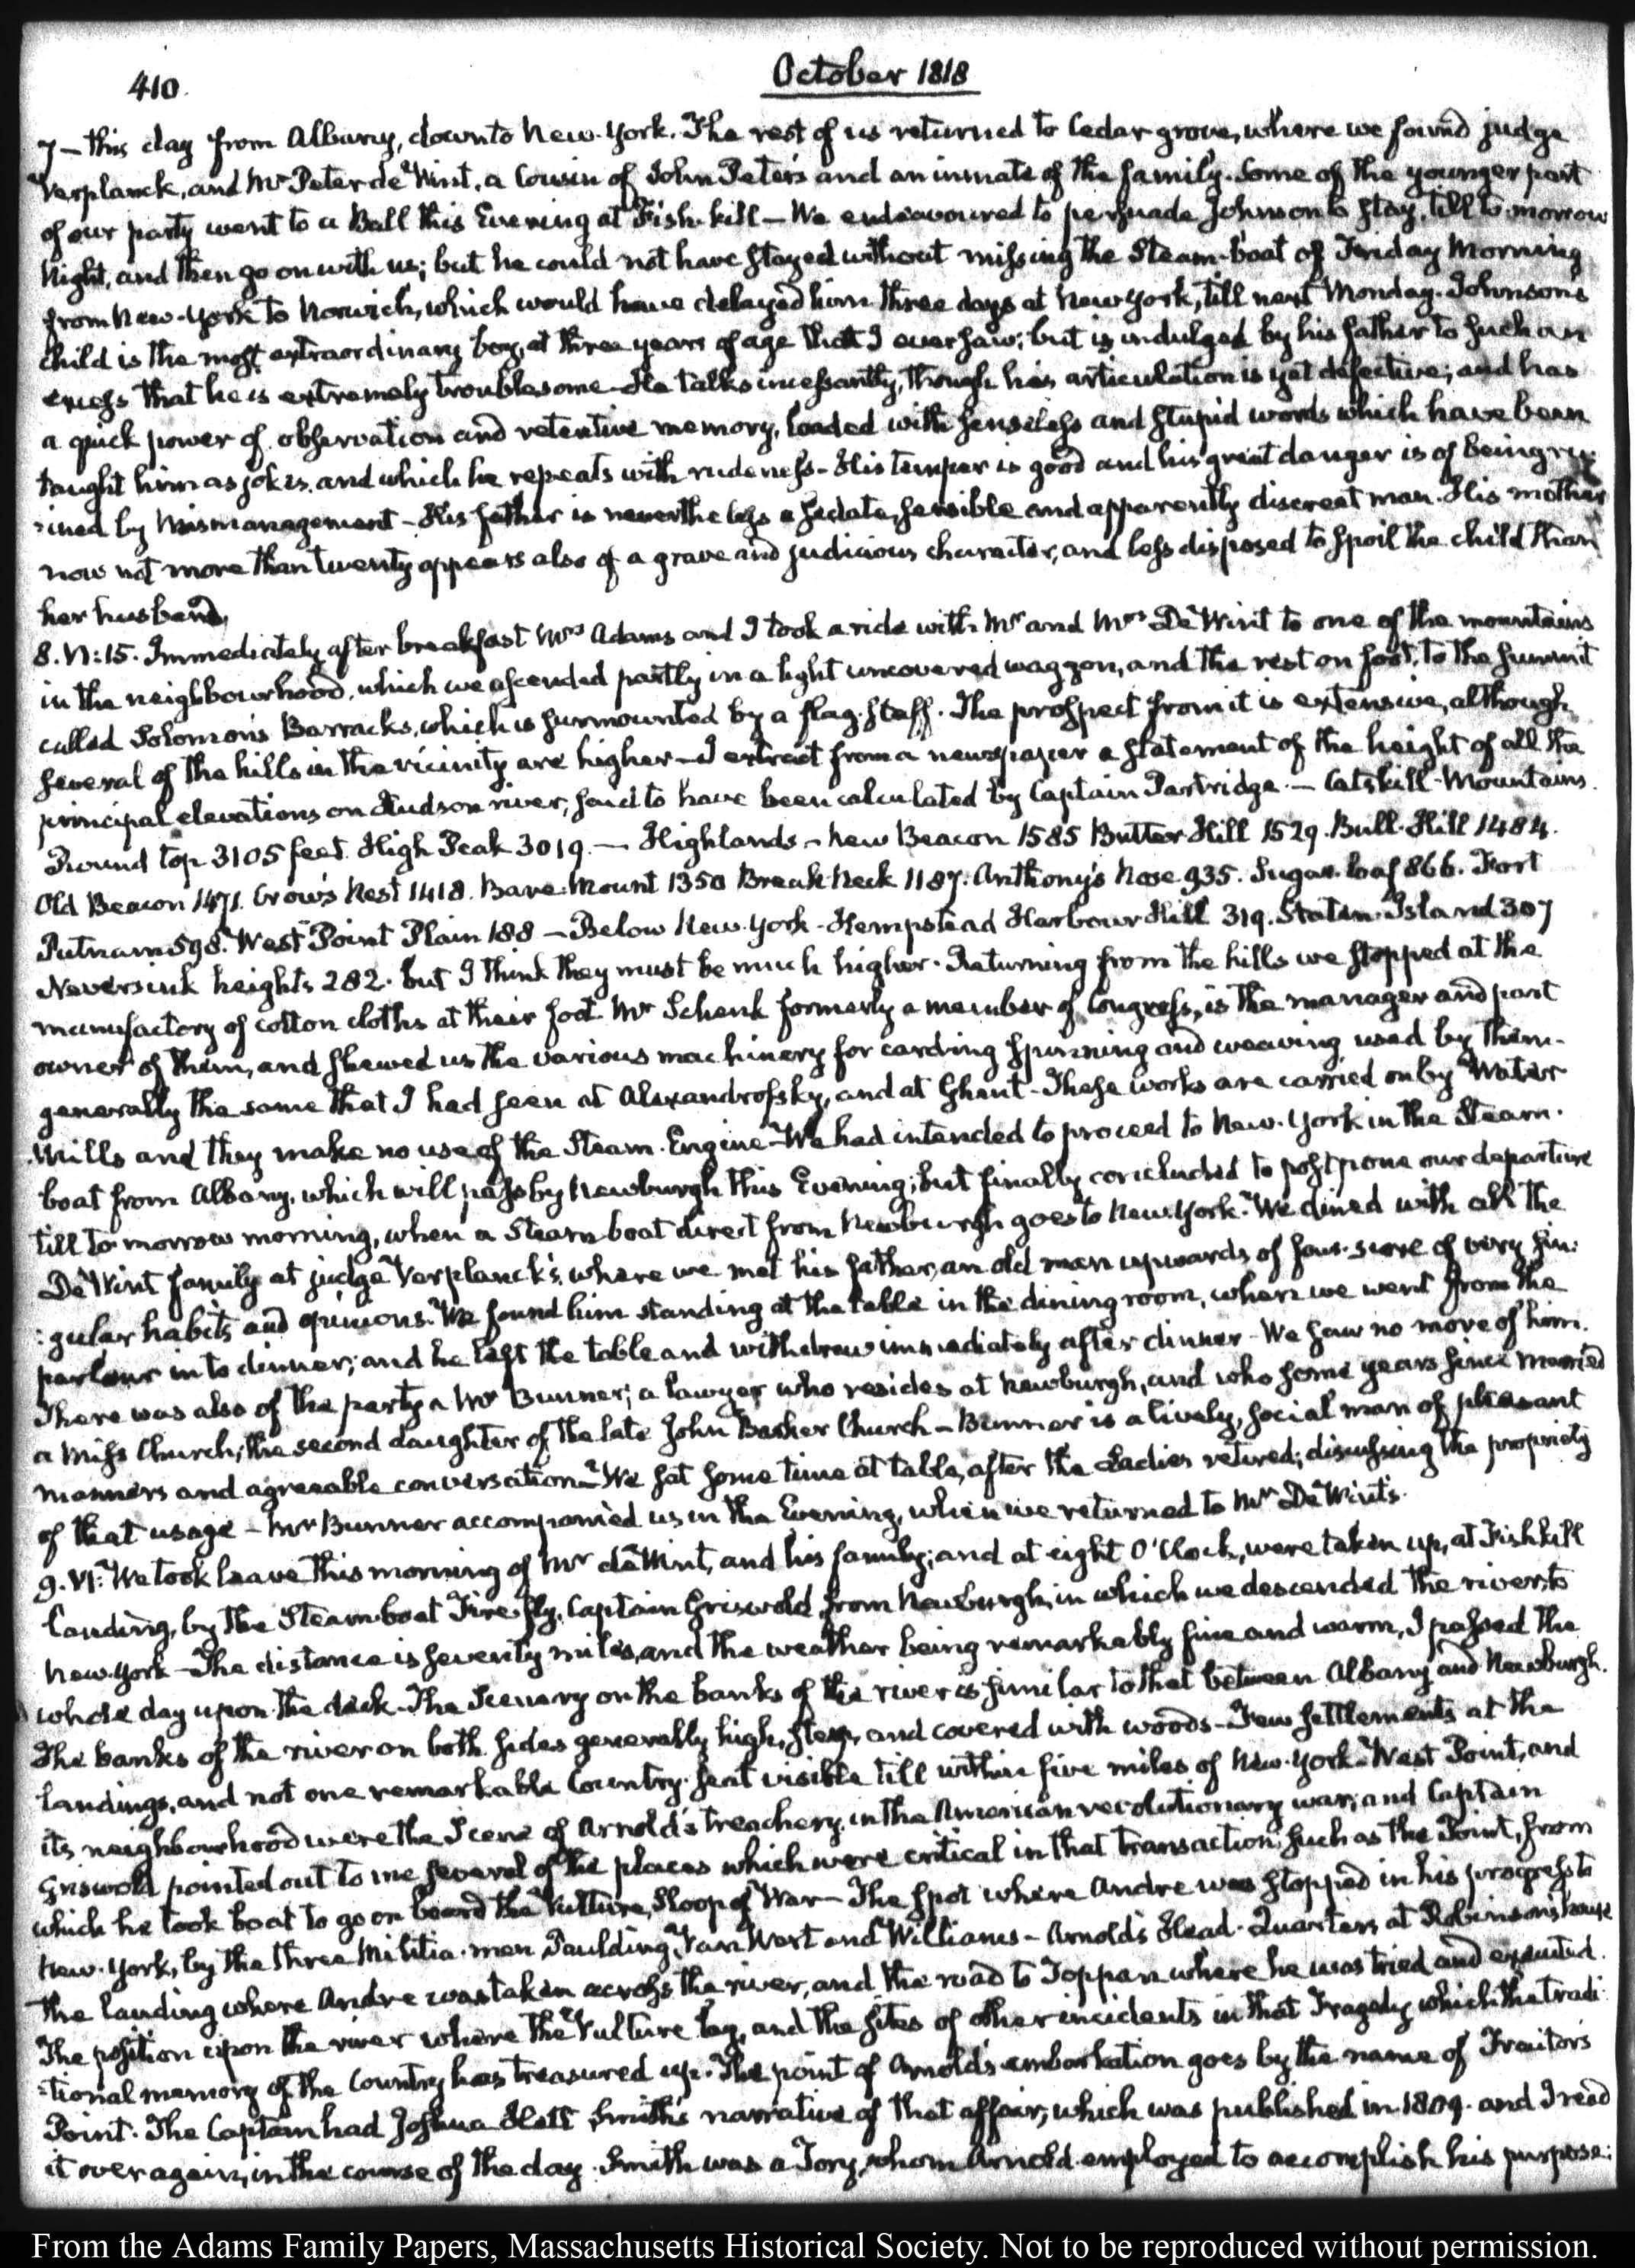 410.
October 1818
7 — this day from Albany, down to New-York. The rest of us returned to Cedar grove, where we found judge
Verplanck, and Mr Peter de Wint, a Cousin of John Peter's and an inmate of the family. Some of the younger part
of our party went to a Ball this Evening at Fish-kill — We endeavoured to persuade Johnson to stay, till to-morrow
Night, and then go on with us; but he could not have stayed without missing the Steam-boat of Friday Morning
from New-York to Norwich, which would have delayed him three days at New York, till next Monday. Johnson's
child is the most extraordinary boy, at three years of age that I ever saw; but is indulged by his father to such an
excess that he is extremely troublesome — He talks incessantly, though his articulation is yet defective; and has
a quick power of observation and retentive memory, loaded with senseless and stupid words which have been
taught him as jokes, and which he repeats with rudeness — His temper is good and his great danger is of being ru-
:ined by Mismanagement — His father is nevertheless a sedate, sensible and apparently discreet man. His mother
now not more than twenty appears also of a grave and judicious character, and less disposed to spoil the child than
her husband,
8. VI:15. Immediately after breakfast Mrs Adams and I took a ride with Mr and Mrs De Wint to one of the mountains
in the neighbourhood, which we ascended partly in a light uncovered waggon, and the rest on foot, to the summit
called Solomon's Barracks, which is surmounted by a flag-staff. The prospect from it is extensive, although
several of the hills in the vicinity are higher — I extract from a newspaper a statement of the height of all the
principal elevations on Hudson river, said to have been calculated by Captain Partridge. — Catskill-Mountains.
Round top 3105 feet. High Peak 3019. — Highlands — New Beacon 1585 Butter-Hill 1529. Bull-Hill 1484.
Old Beacon 1471. Crow's Nest 1418. Bare-Mount 1350 Break-Neck 1187. Anthony's Nose 935. Sugar-loaf 866. Fort
Putnam 598. West Point Plain 188 — Below New-York — Hempstead Harbour Hill 319. Staten-Island 307
Neversink heights 282. but I think they must be much higher. Returning from the hills we stopped at the
manufactory of cotton cloths at their foot. Mr Schenk formerly a member of Congress, is the manager and part
owner of them, and shewed us the various machinery for carding spinning and weaving used by them.
generally the same that I had seen at Alexandrofsky, and at Ghent — These works are carried on by Water
Mills and they make no use of the Steam-Engine — We had intended to proceed to New-York in the Steam-
boat from Albany, which will pass by Newburgh this Evening; but finally concluded to postpone our departure
till to-morrow morning, when a Steam-boat direct from Newburgh goes to New-York. We dined with all the
De Wint family at judge Verplanck's, where we met his father, an old man upwards of four-score of very sin:
:gular habits and opinions. We found him standing at the table in the dining room, when we went from the
parlour in to dinner; and he left the table and withdrew immediately after dinner — We saw no more of him.
There was also of the party a Mr Bunner; a lawyer who resides at Newburgh, and who some years since married
a Miss Church, the second daughter of the late John Barker Church — Bunner is a lively, social man of pleasant
manners and agreeable conversation — We sat some time at table, after the Ladies retired; discussing the propriety
of that usage — Mr Bunner accompanied us in the Evening, when we returned to Mr De Wint's.
9. VI: We took leave this morning of Mr de Wint, and his family; and at eight O'Clock, were taken up, at Fishkill
landing, by the Steam-boat Fire-fly, Captain Griswold from Newburgh, in which we descended the river, to
New-York — The distance is seventy miles, and the weather being remarkably fine and warm, I passed the
whole day upon the deck — The Scenery on the banks of the river is similar to that between Albany and Newburgh.
The banks of the river on both sides generally high, steep, and covered with woods — Few settlements at the
landings, and not one remarkable Country-seat visible till within five miles of New-York — West Point, and
its neighbourhood were the Scene of Arnold's treachery in the American revolutionary war, and Captain
Griswold pointed out to me several of the places which were critical in that transaction, such as the Point, from
which he took boat to go on board the Vulture, Sloop of War — The spot where Andre was stopped in his progress to
New-York, by the three Militia-men, Paulding, Van Wert and Williams — Arnold's Head-Quarters, at Robinson's house
The landing where Andre was taken across the river, and the road to Toppan where he was tried and executed.
The position upon the river where the Vulture lay, and the sites of other incidents in that Tragedy which the tradi-
:tional memory of the Country has treasured up. The point of Arnold's embarkation goes by the name of Traitor's
Point. The Captain had Joshua Hett Smith's narrative of that affair, which was published in 1809. and I read
it over again, in the course of the day. Smith was a Tory, whom Arnold employed to accomplish his purpose:
From the Adams Family Papers, Massachusetts Historical Society. Not to be reproduced without permission.